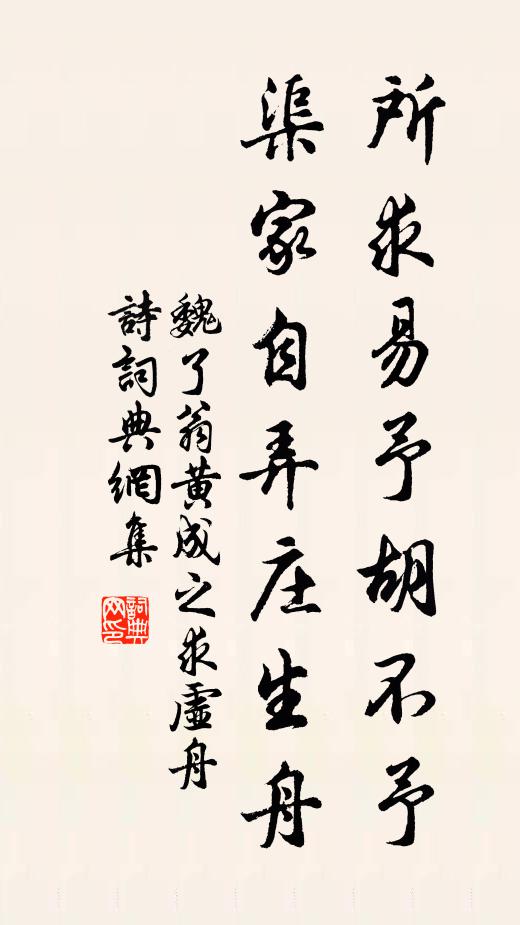 所求易予胡不予
渠家自弄庄生舟
魏了翁黄成之求虛舟
詩詞典網集
詞典
网印